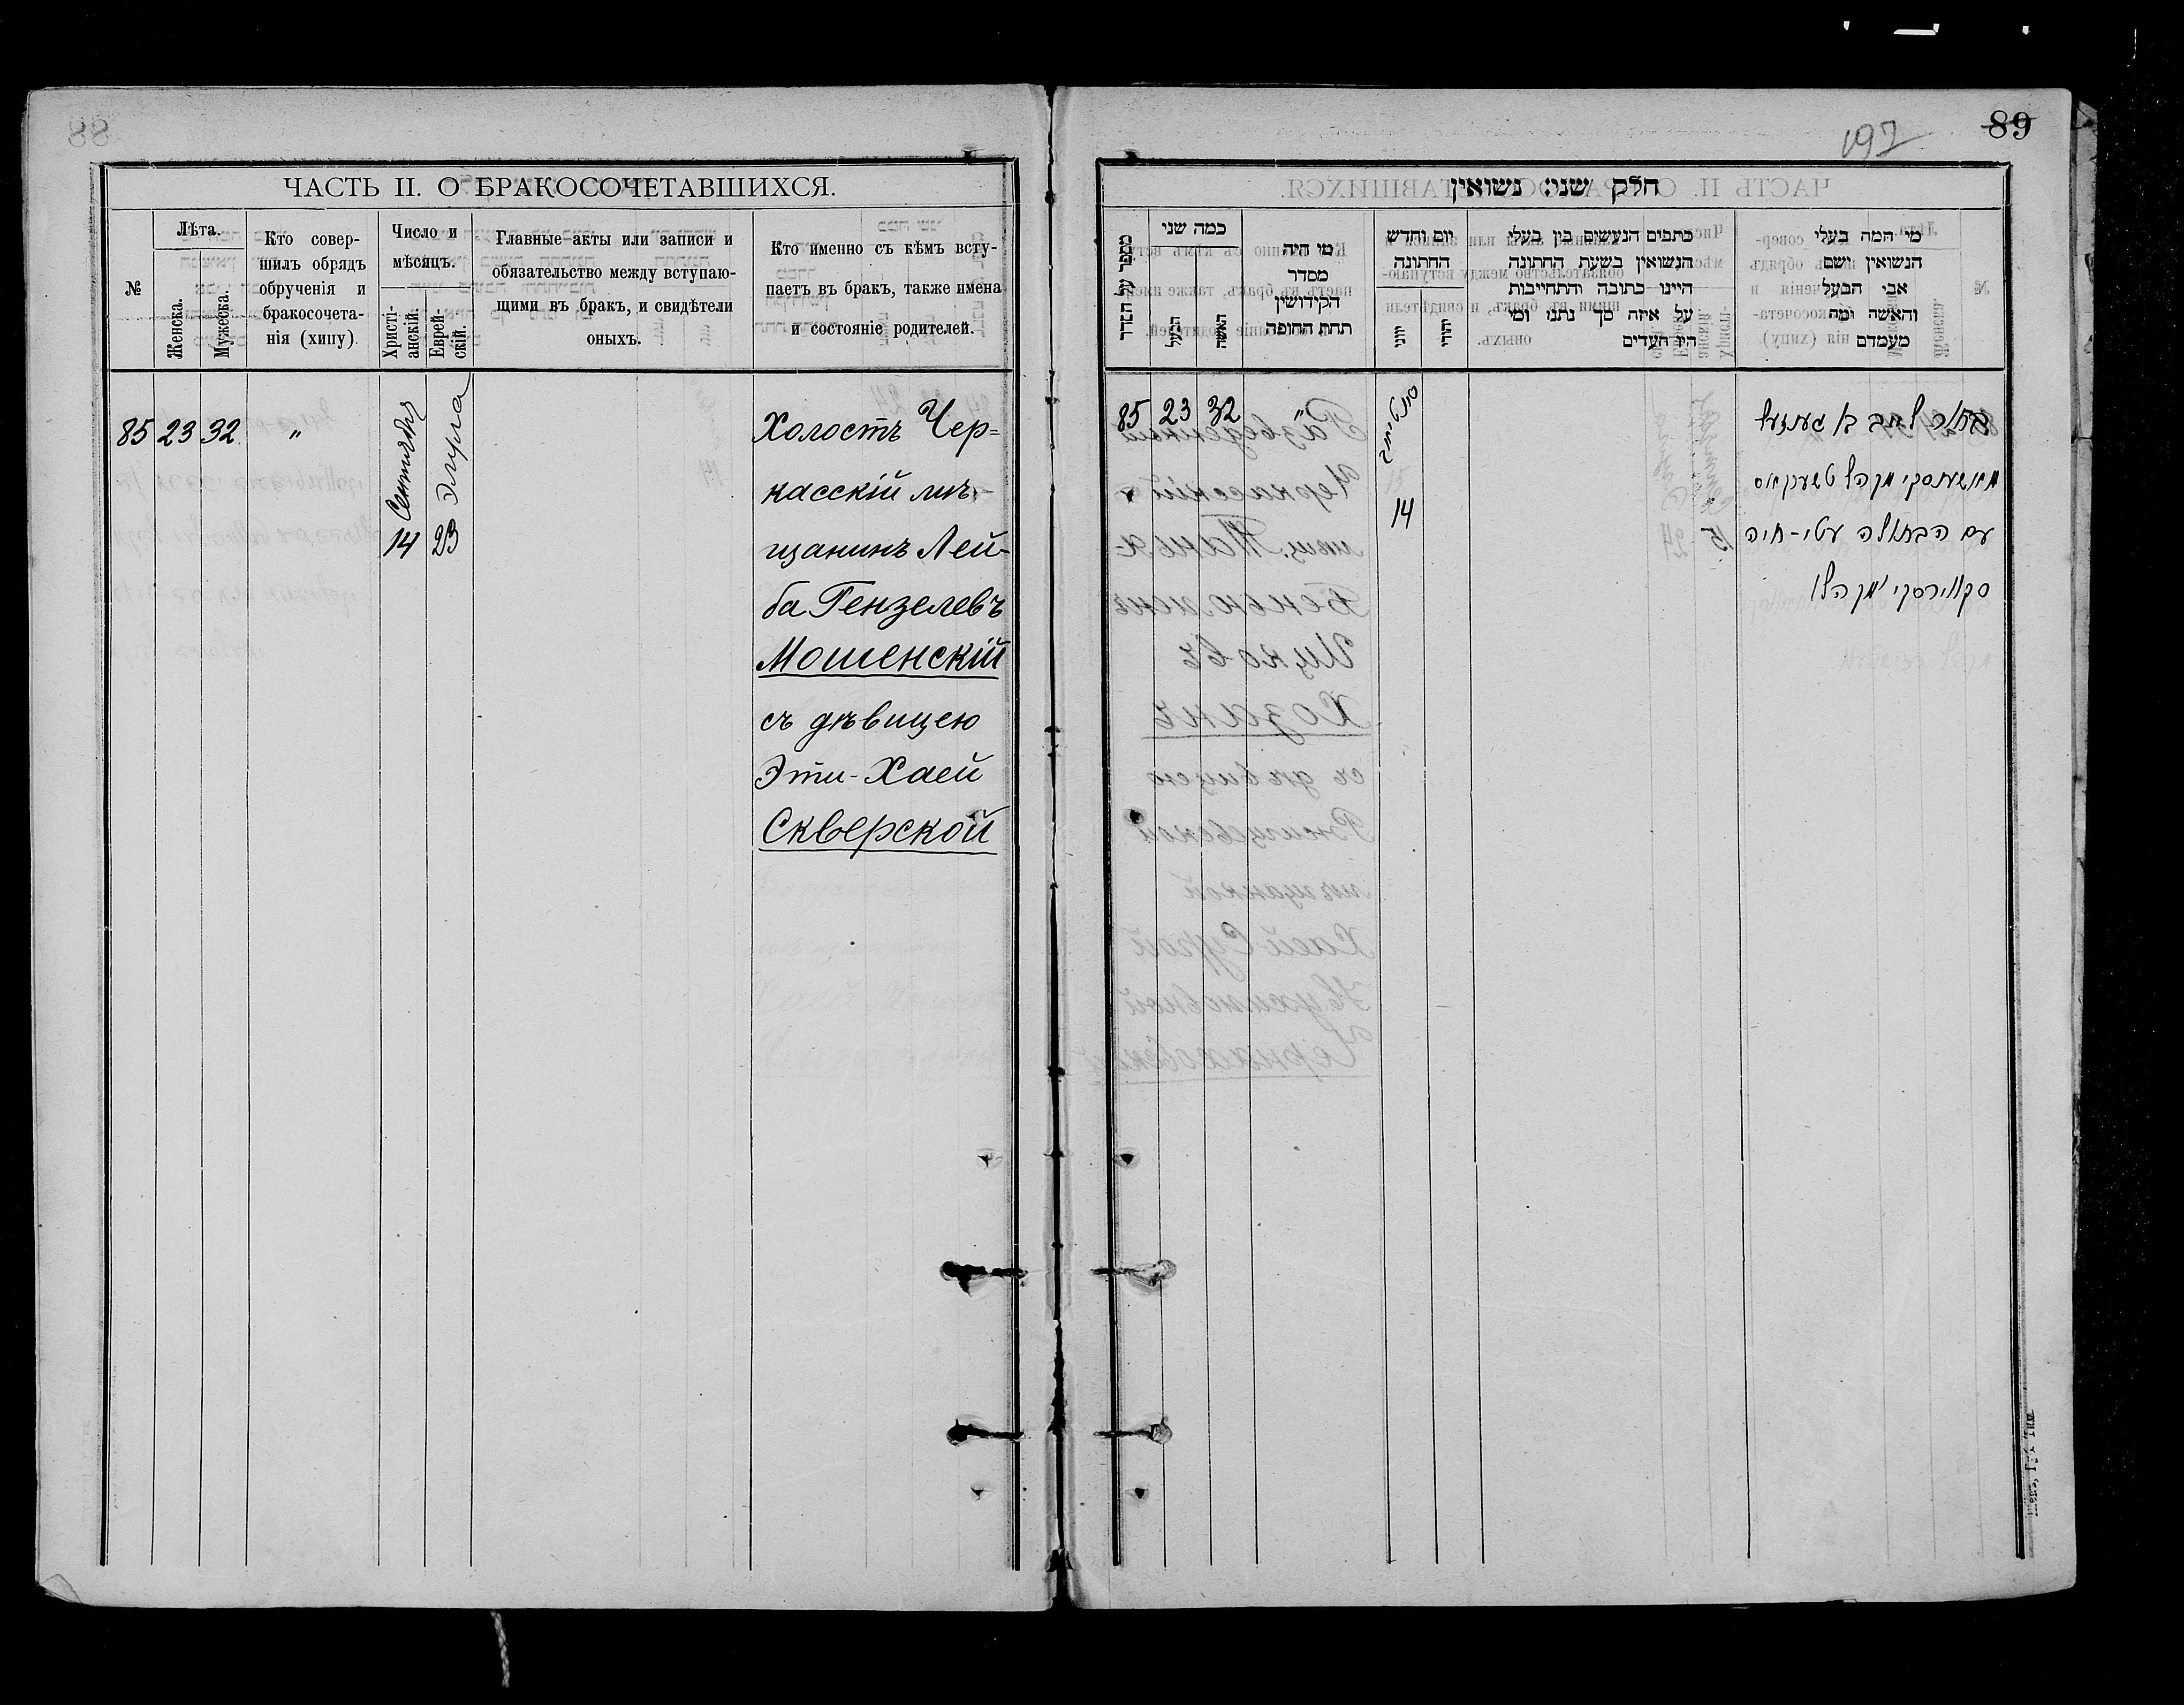 89
197
ЧАСТЬ II. О БРАКОСОЧЕТАВШИХСЯ.
№
Лѣта.
Женска.
Мужеска.
Кто совер-
шилъ обрядъ
обрученія и
бракосочета-
нія (хипу).
Число и
мѣсяцъ.
Христі-
анскій.
Еврей-
скій.
Главные акты или записи и
обязательство между вступаю-
щими въ бракъ, и свидѣтели
оныхъ.
Кто именно съ кѣмъ всту-
паетъ въ бракъ, также имена
и состояніе родителей.
85 23 32 "
Сентября
14
Элула
23
Холостъ Чер=
касскій мѣ-
щанинъ Лей-
ба Гензелевъ
Мошенскій
съ дѣвицею
Эти-Хаей
Скверской
חלק שני: נשואין
מספר על הסדר
כמה שני
הבעל
האשה
מי היה
מסדר
הקידושין
תחת החופה
יום וחדש
החתונה
יוני
יהודי
כתפים הנעשים בין בעלי
הנשואין בשעת החתונה
היינו כתובה והתחייבות
על איזה סך נתנו ומי
היו העדים
מי המה בעלי
הנשואין ושם
אבי הבעל
והאשה ומה
מעמדם
85 23 32 "
סענטיאבר
14
עם הבתולה עטי-חיה